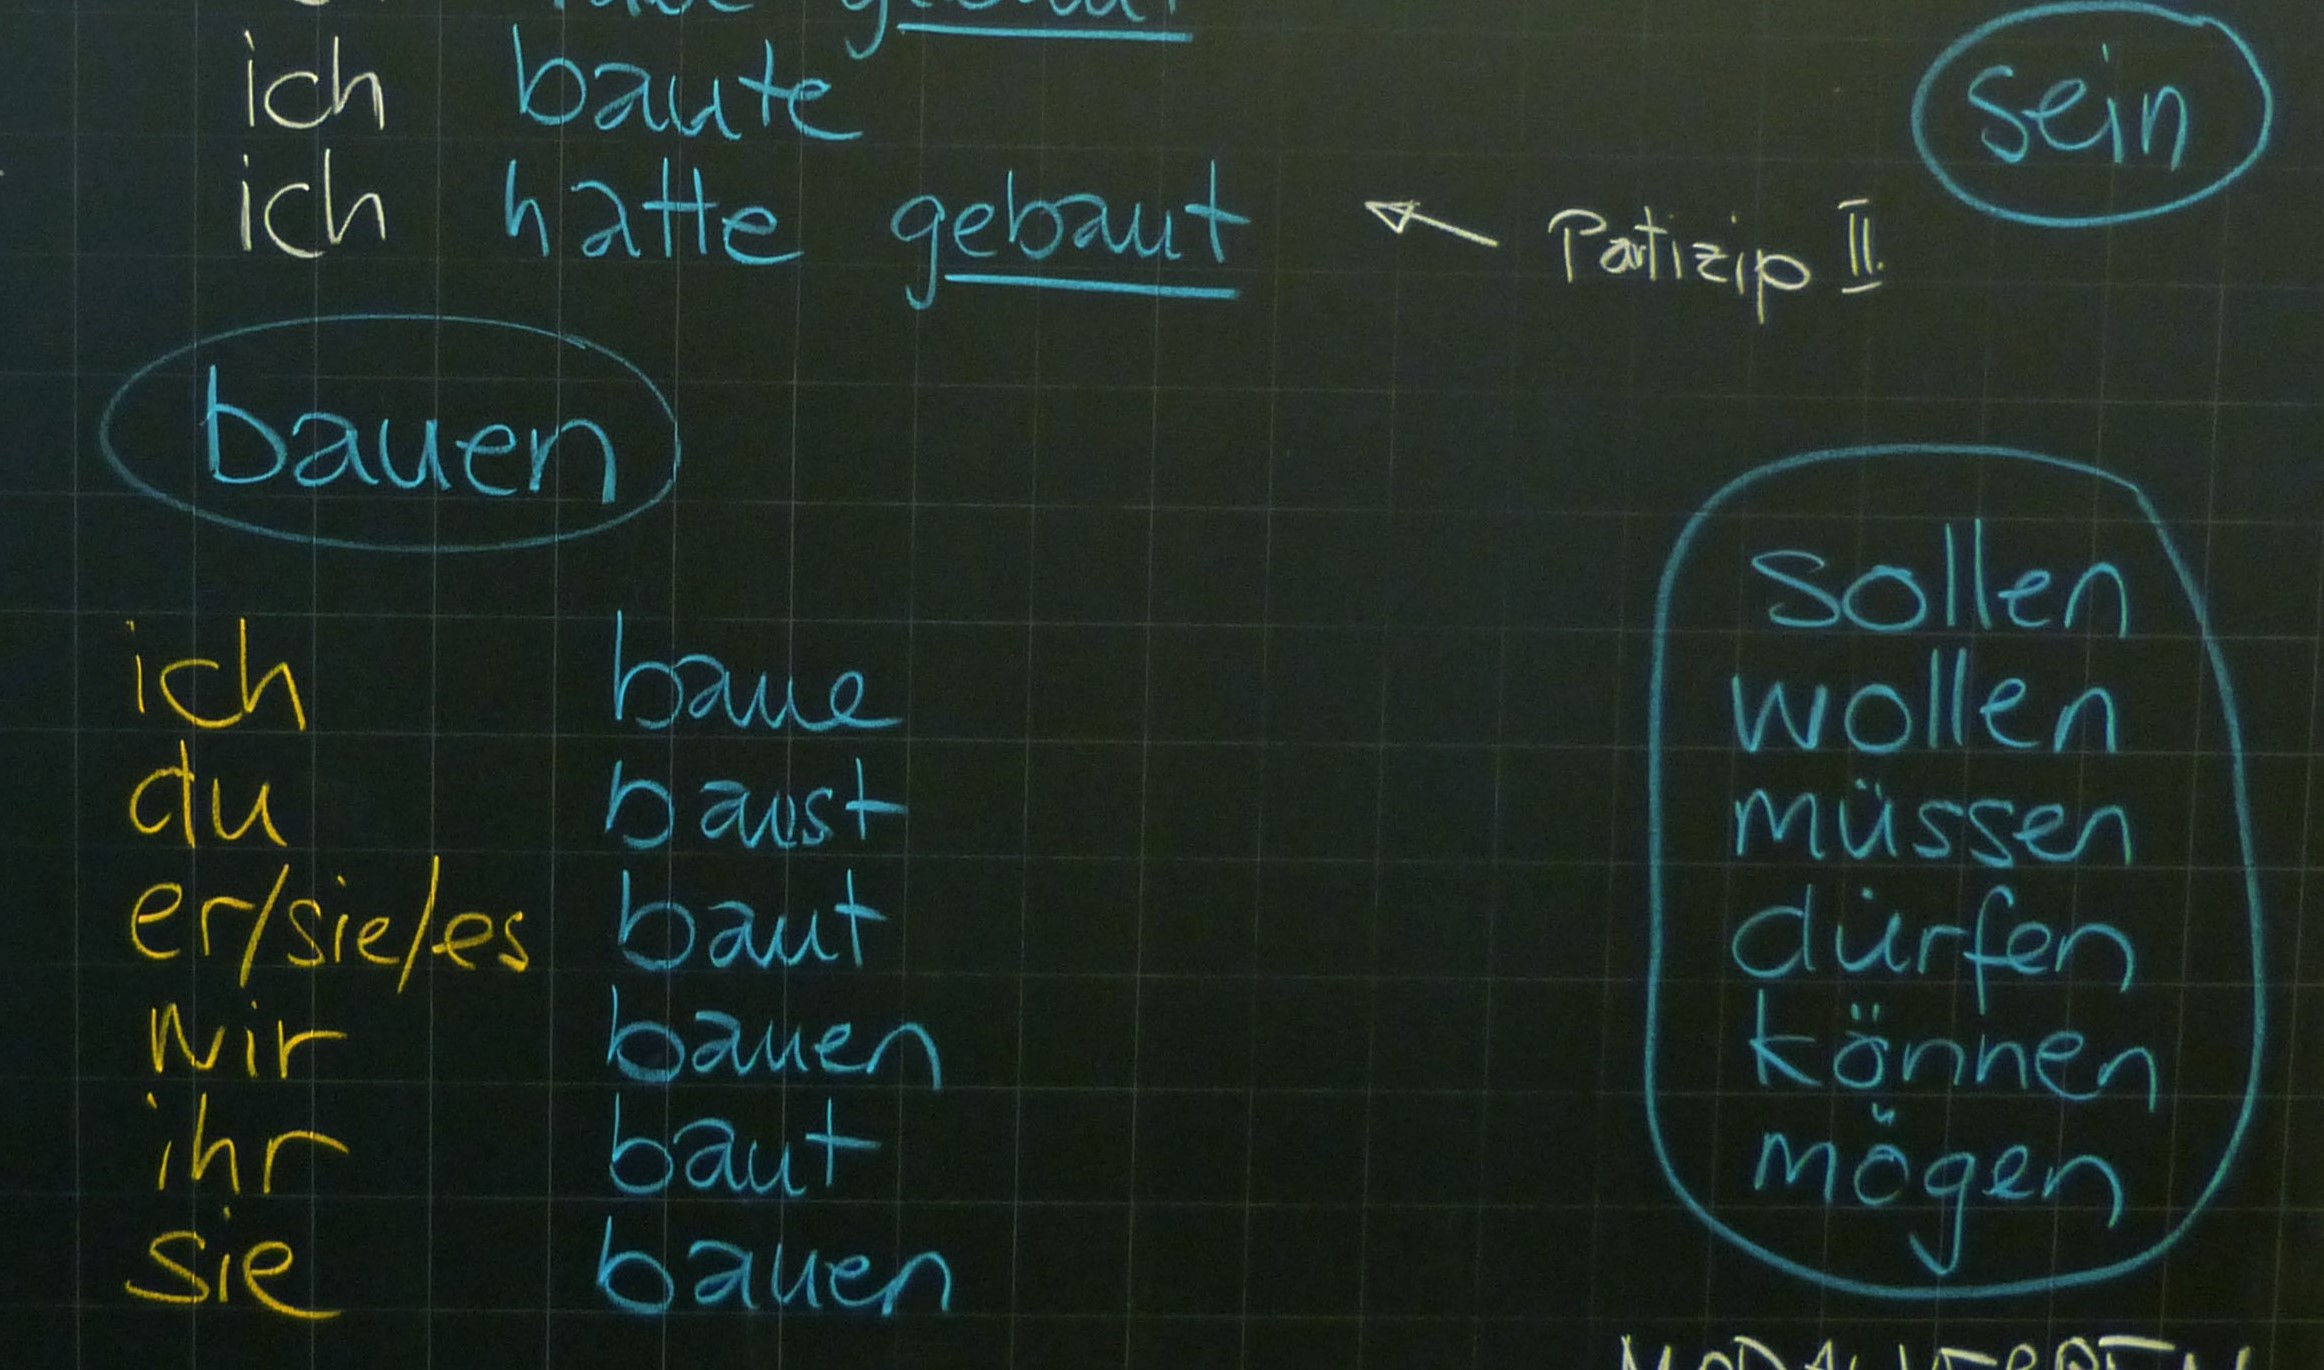 gebaut
ich baute
sein
ich hatte gebaut
Partizip II.
bauen
ich baue
du baust
er/sie/es baut
wir bauen
ihr baut
sie bauen
sollen
wollen
müssen
dürfen
können
mögen
MODALVERBEN